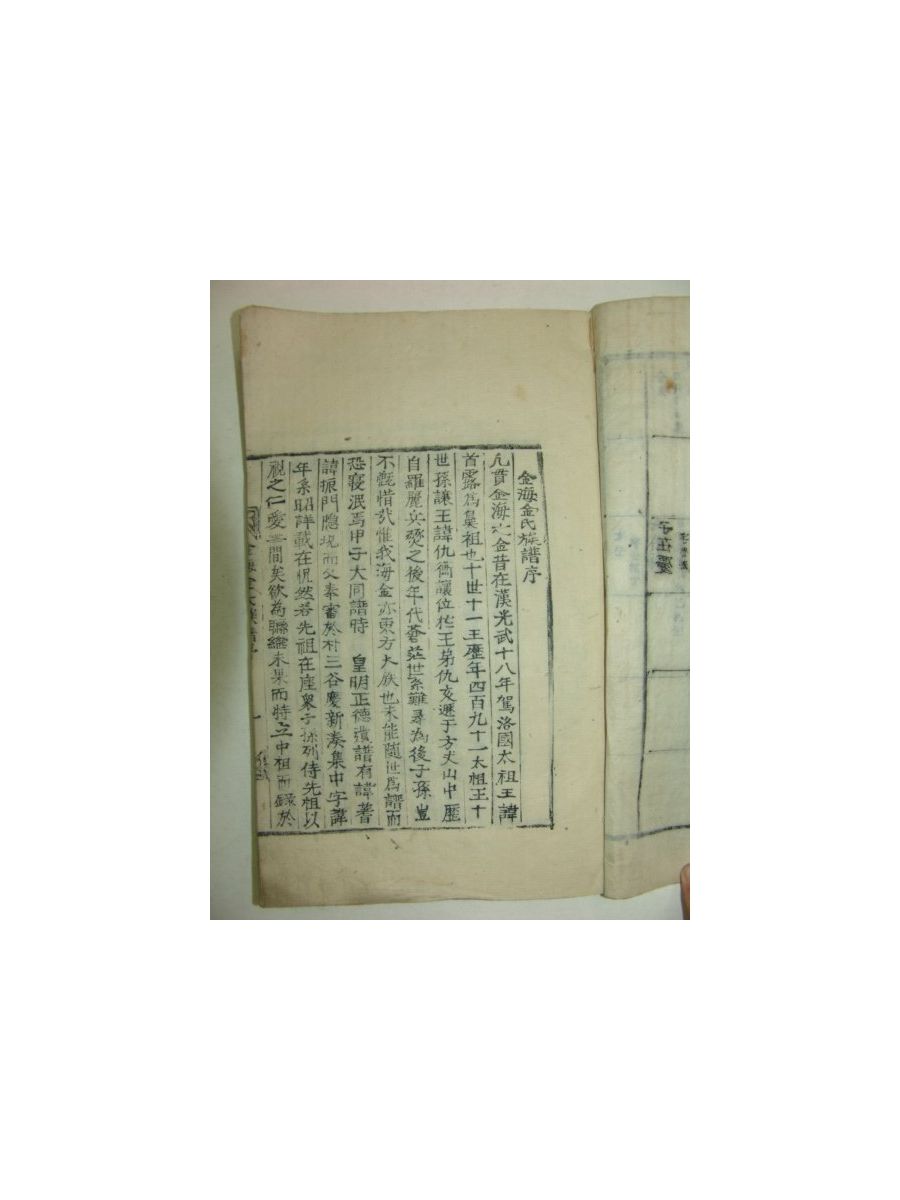 金海金氏族譜序
凡貫金海之金昔在漢光武十八年駕洛國太祖王諱
首露爲鼻祖也十世十一王歷年四百九十一太祖王十
世孫讓王諱仇衝讓位於王弟仇亥遯于方丈山中歷
自羅麗兵燹之後年代蒼茫世系難尋為後子孫豈
不慨惜哉惟我海金亦東方大族也未能隨世爲譜而
恐寢泯焉甲子大同譜時 皇明正德遺譜有諱著
諱振門隱現而父奉審於村三谷慶新湊集中字諱
年系昭詳載在恍然若先祖在座衆子孫列侍先祖以
視之仁愛無間矣欲為聯繼未果而特立中祖而錄於
子在